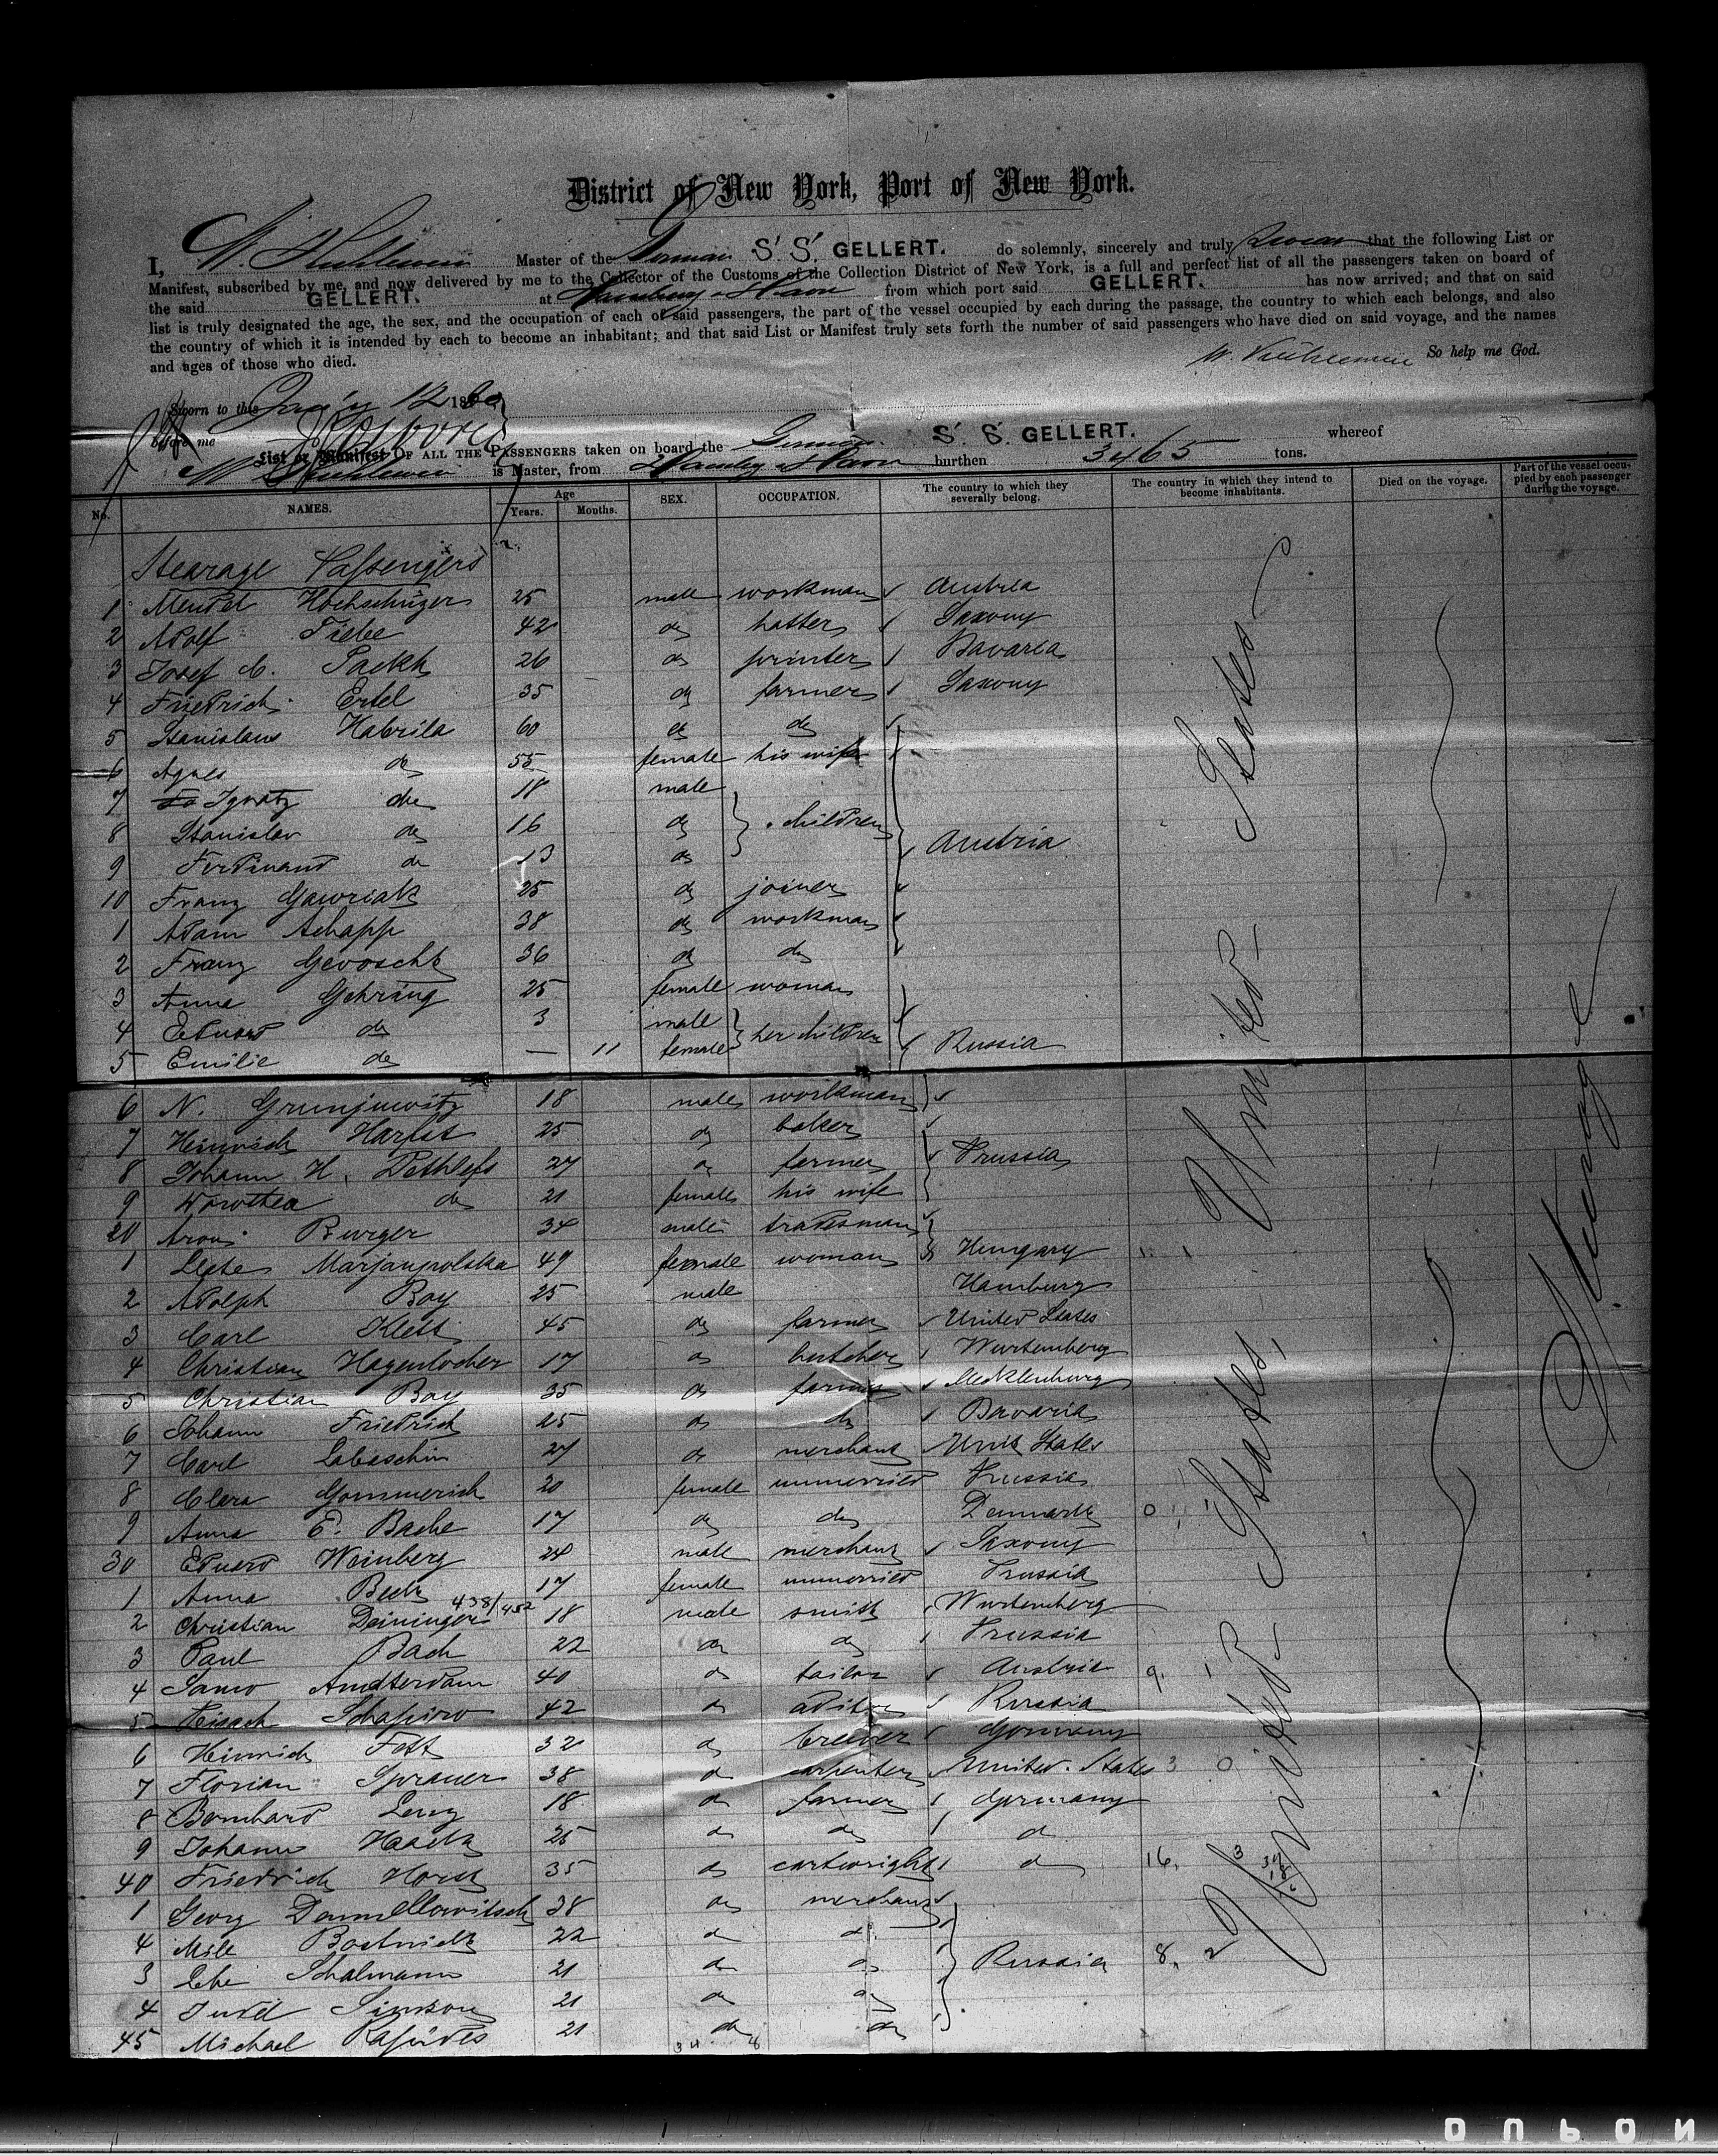 District of New York, Port of New York.
I, W. Kühlewein Master of the German S. S. GELLERT. do solemnly, sincerely and truly swear that the following List or
Manifest, subscribed by me, and now delivered by me to the Collector of the Customs of the Collection District of New York, is a full and perfect list of all the passengers taken on board of
the said GELLERT. at Hamburg & Havre from which port said GELLERT. has now arrived; and that on said
list is truly designated the age, the sex, and the occupation of each of said passengers, the part of the vessel occupied by each during the passage, the country to which each belongs, and also
the country of which it is intended by each to become an inhabitant; and that said List or Manifest truly sets forth the number of said passengers who have died on said voyage, and the names
and ages of those who died.
W. Kühlewein So help me God.
Sworn to this 12 18
before me
List or Manifest OF ALL THE PASSENGERS taken on board the German S. S. GELLERT. whereof
W Kühlewein is Master, from Hamburg & Havre burthen 3465 tons.
No. NAMES. Age Years. Months. SEX. OCCUPATION. The country to which they severally belong. The country in which they intend to become inhabitants. Died on the voyage. Part of the vessel occupied by each passenger during the voyage.
Stearage Passengers
1 Mendel Hochschuzer 25 male workman Austria
2 Adolf Fiebe 42 do hatter Saxony
3 Josef C. Packh 26 do printer Bavaria
4 Friedrich Ertel 35 do farmer Saxony
5 Stanislaus Habrila 60 do do
6 Agnes do 55 female his wife
7 Ignatz do 18 male
8 Stanislav do 16 do children
9 Ferdinand do 13 do Austria
10 Franz Gawriak 25 do joiner
1 Adam Schapp 38 do workman
2 Franz Gevoscht 36 do do
3 Anna Gehring 25 female woman
4 Eduard do 3 male her children
5 Emilie do — 11 female Russia
6 N. Grunjuwitz 18 male workman
7 Heinrich Harfst 25 do baker
8 Johann H. Dethlefs 27 do farmer Prussia
9 Dorothea do 21 female his wife
20 Aron Burger 34 male tradesman
1 Marjampolska 49 female woman Hungary
2 Adolph Boy 25 male Hamburg
3 Carl Klett 45 do farmer United States
4 Christian Hagenlocher 17 do butcher Wurtemberg
5 Christian Boy 35 do farmer Mecklenburg
6 Johann Friedrich 25 do do Bavaria
7 Carl Labaschin 27 do merchant Unit States
8 Clara Gommerich 20 female unmarried Prussia
9 Anna C. Bache 17 do do Denmark
30 Eduard Weinberg 24 male merchant Saxony
1 Anna Beck 17 female unmarried Prussia
438/452
2 Christian Deininger 18 male smith Wurtemberg
3 Paul Bach 22 do do Prussia
4 Samo Amsterdam 40 do tailor Austria
5 Schapiro 42 do Russia
6 Heinrich Fett 32 do brewer Germany
7 Florian Sprauer 38 do carpenter United States
8 Bernhard Levy 18 do farmer Germany
9 Johann Haack 25 do do do
40 Friedrich Horst 35 do cartwright do
1 Georg Dannellowitsch 38 do merchant
4 Mile Bostwick 22 do do
3 Schalmann 21 do do Russia
4 Judel Simson 21 do do
45 Michael 21 do do
United States
United States
Steerage